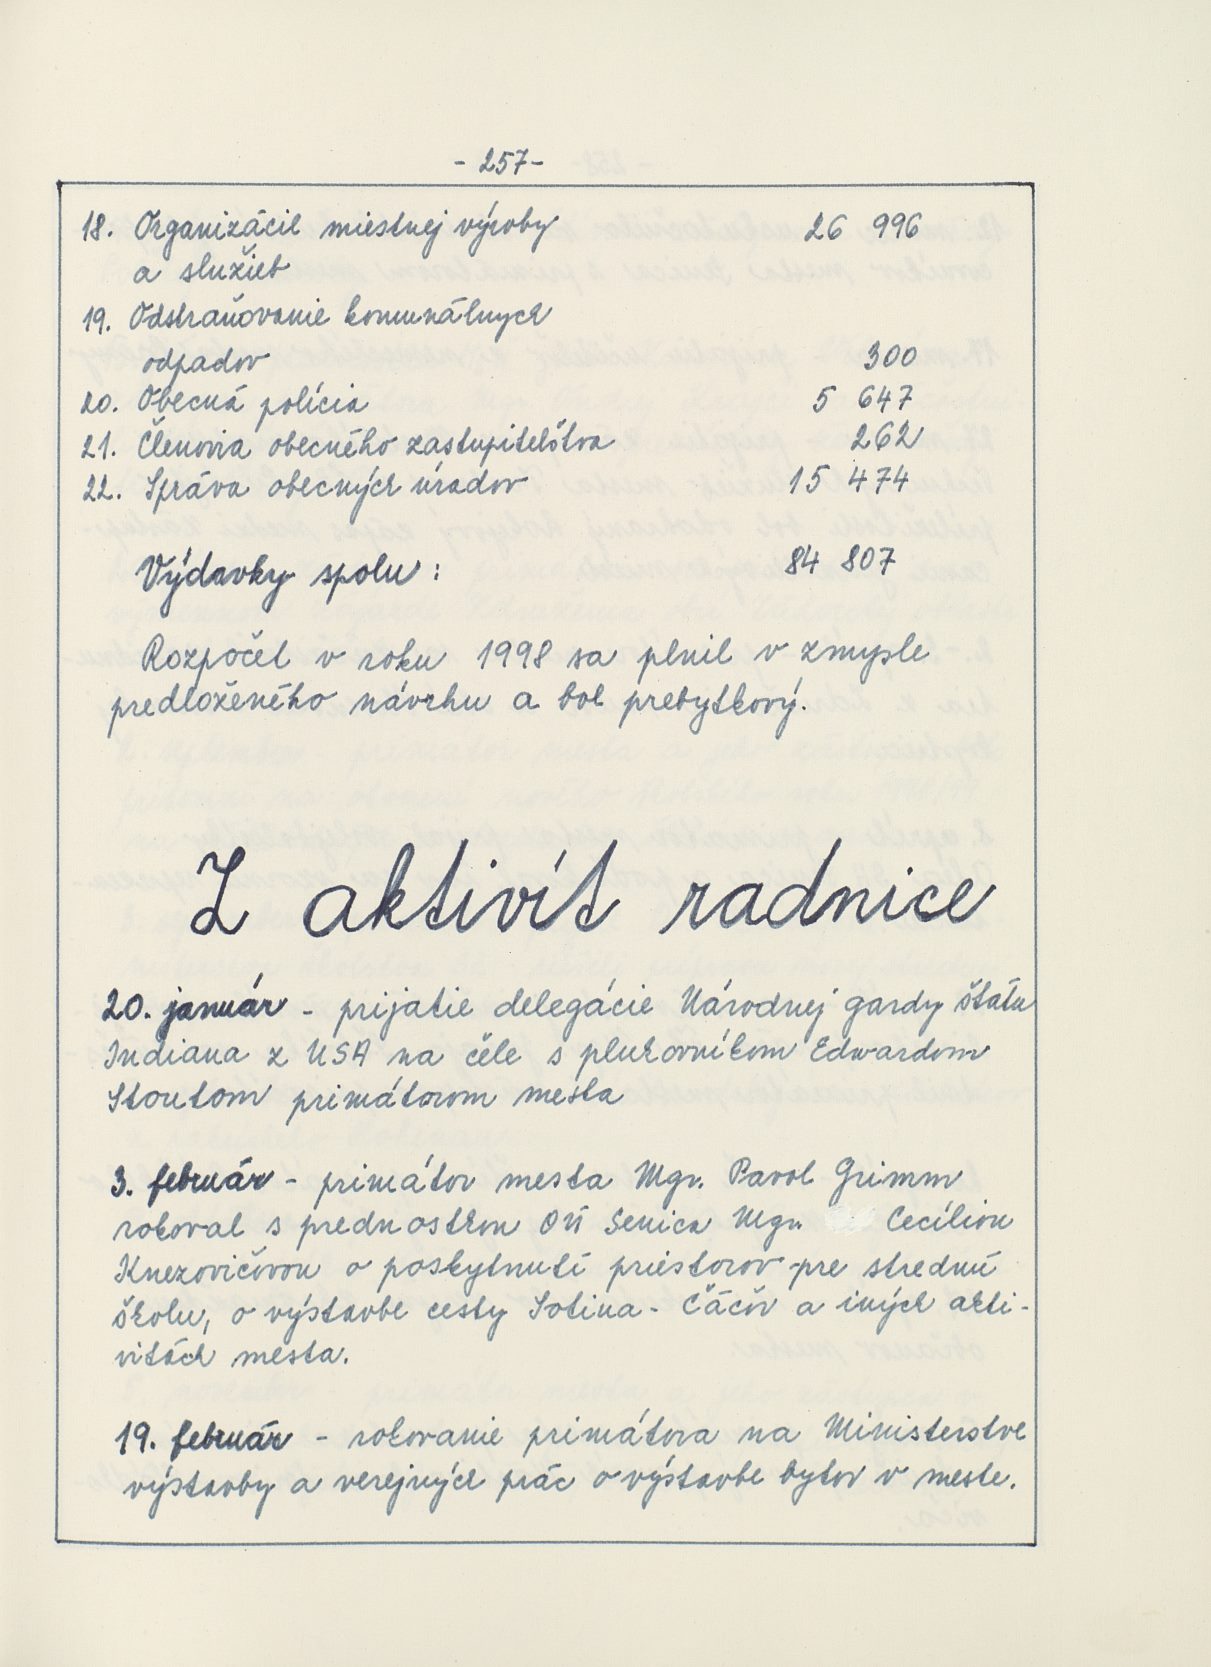 - 257 -
18. Organizácie miestnej výroby 26 996
a služieb
19. Odstraňovanie komunálnych
odpadov 300
20. Obecná polícia 5 647
21. Členovia obecného zastupiteľstva 262
22. Správa obecných úradov 15 474
Výdavky spolu: 84 807
Rozpočet v roku 1998 sa plnil v zmysle
predloženého návrhu a bol prebytkový.
Z aktivít radnice
20. január - prijatie delegácie Národnej gardy štátu
Indiana z USA na čele s plukovníkom Edwardom
Stoutom primátorom mesta
3. február - primátor mesta Mgr. Pavol Grimm
rokoval s prednostkou OÚ Senica Mgr. Cecíliou
Knezovičovou o poskytnutí priestorov pre strednú
školu, o výstavbe cesty Sotina - Čáčov a iných akti-
vitách mesta.
19. február - rokovanie primátora na Ministerstve
výstavby a verejných prác o výstavbe bytov v meste.